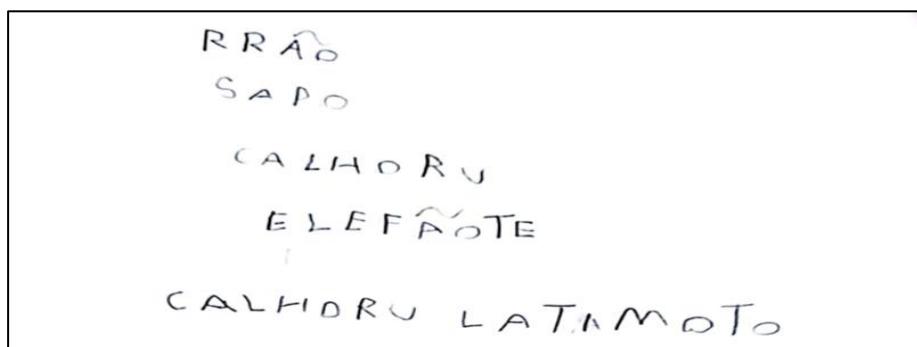 RRÃO
SAPO
CALHORU
ELEFÃOTE
CALHORU LATIMOTO